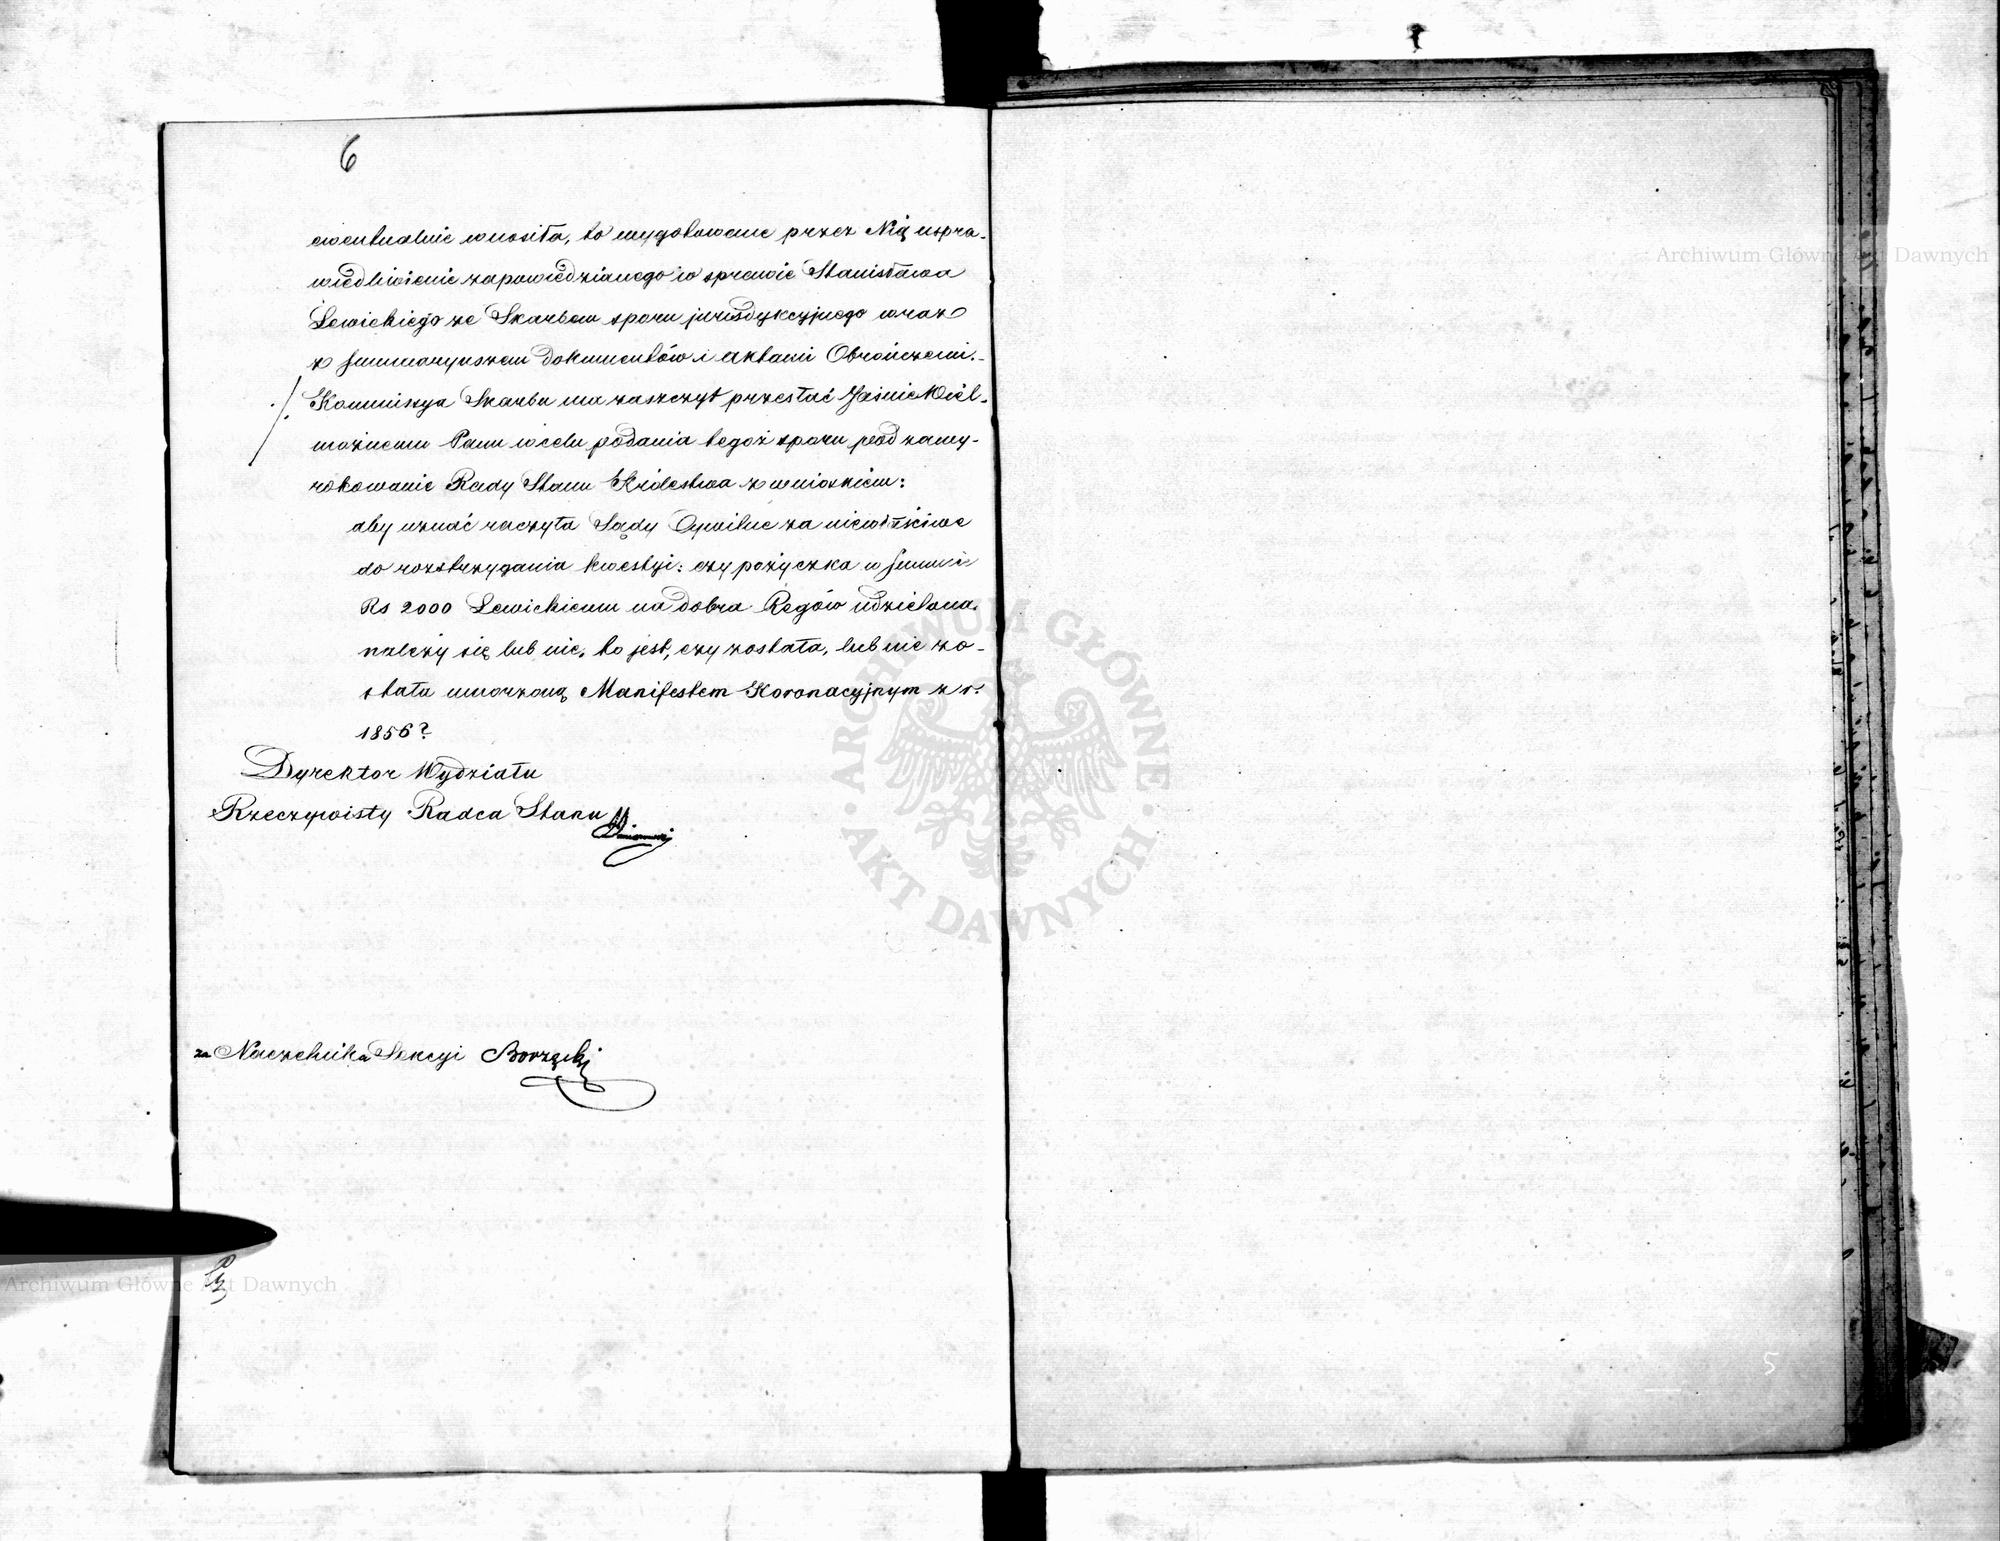 6
ewentualnie wnosiła, to wygotowane przez Nią uspra-
wiedliwienie zapowiedzianego w sprawie Stanisława
Lewickiego ze Skarbem sporu jurisdykcyjnego wraz
z summaryuszem dokumentów i aktami Obrończemi.-
Kommissya Skarbu ma zaszczyt przesłać JaśnieWiel-
możnemu Panu w celu podania tegoż sporu pod zawy-
rokowanie Rady Stanu Królestwa z wnioskiem:
aby uznać raczyła Sądy Cywilne za niewłaściwe
do rozstrzygania kwestyi: czy pożyczka w summie
Rs 2000 Lewickiemu na dobra Regów udzielona
należy się lub nie, to jest, czy została, lub nie zo-
stała umorzoną Manifestem Koronacyjnym z r.
1856?
Dyrektor Wydziału
Rzeczywisty Radca Stanu
za Naczelnika Sekcyi Borzęcki
Archiwum Główne Akt Dawnych
Archiwum Główne Akt Dawnych
ARCHIWUM GŁÓWNE
AKT DAWNYCH
5